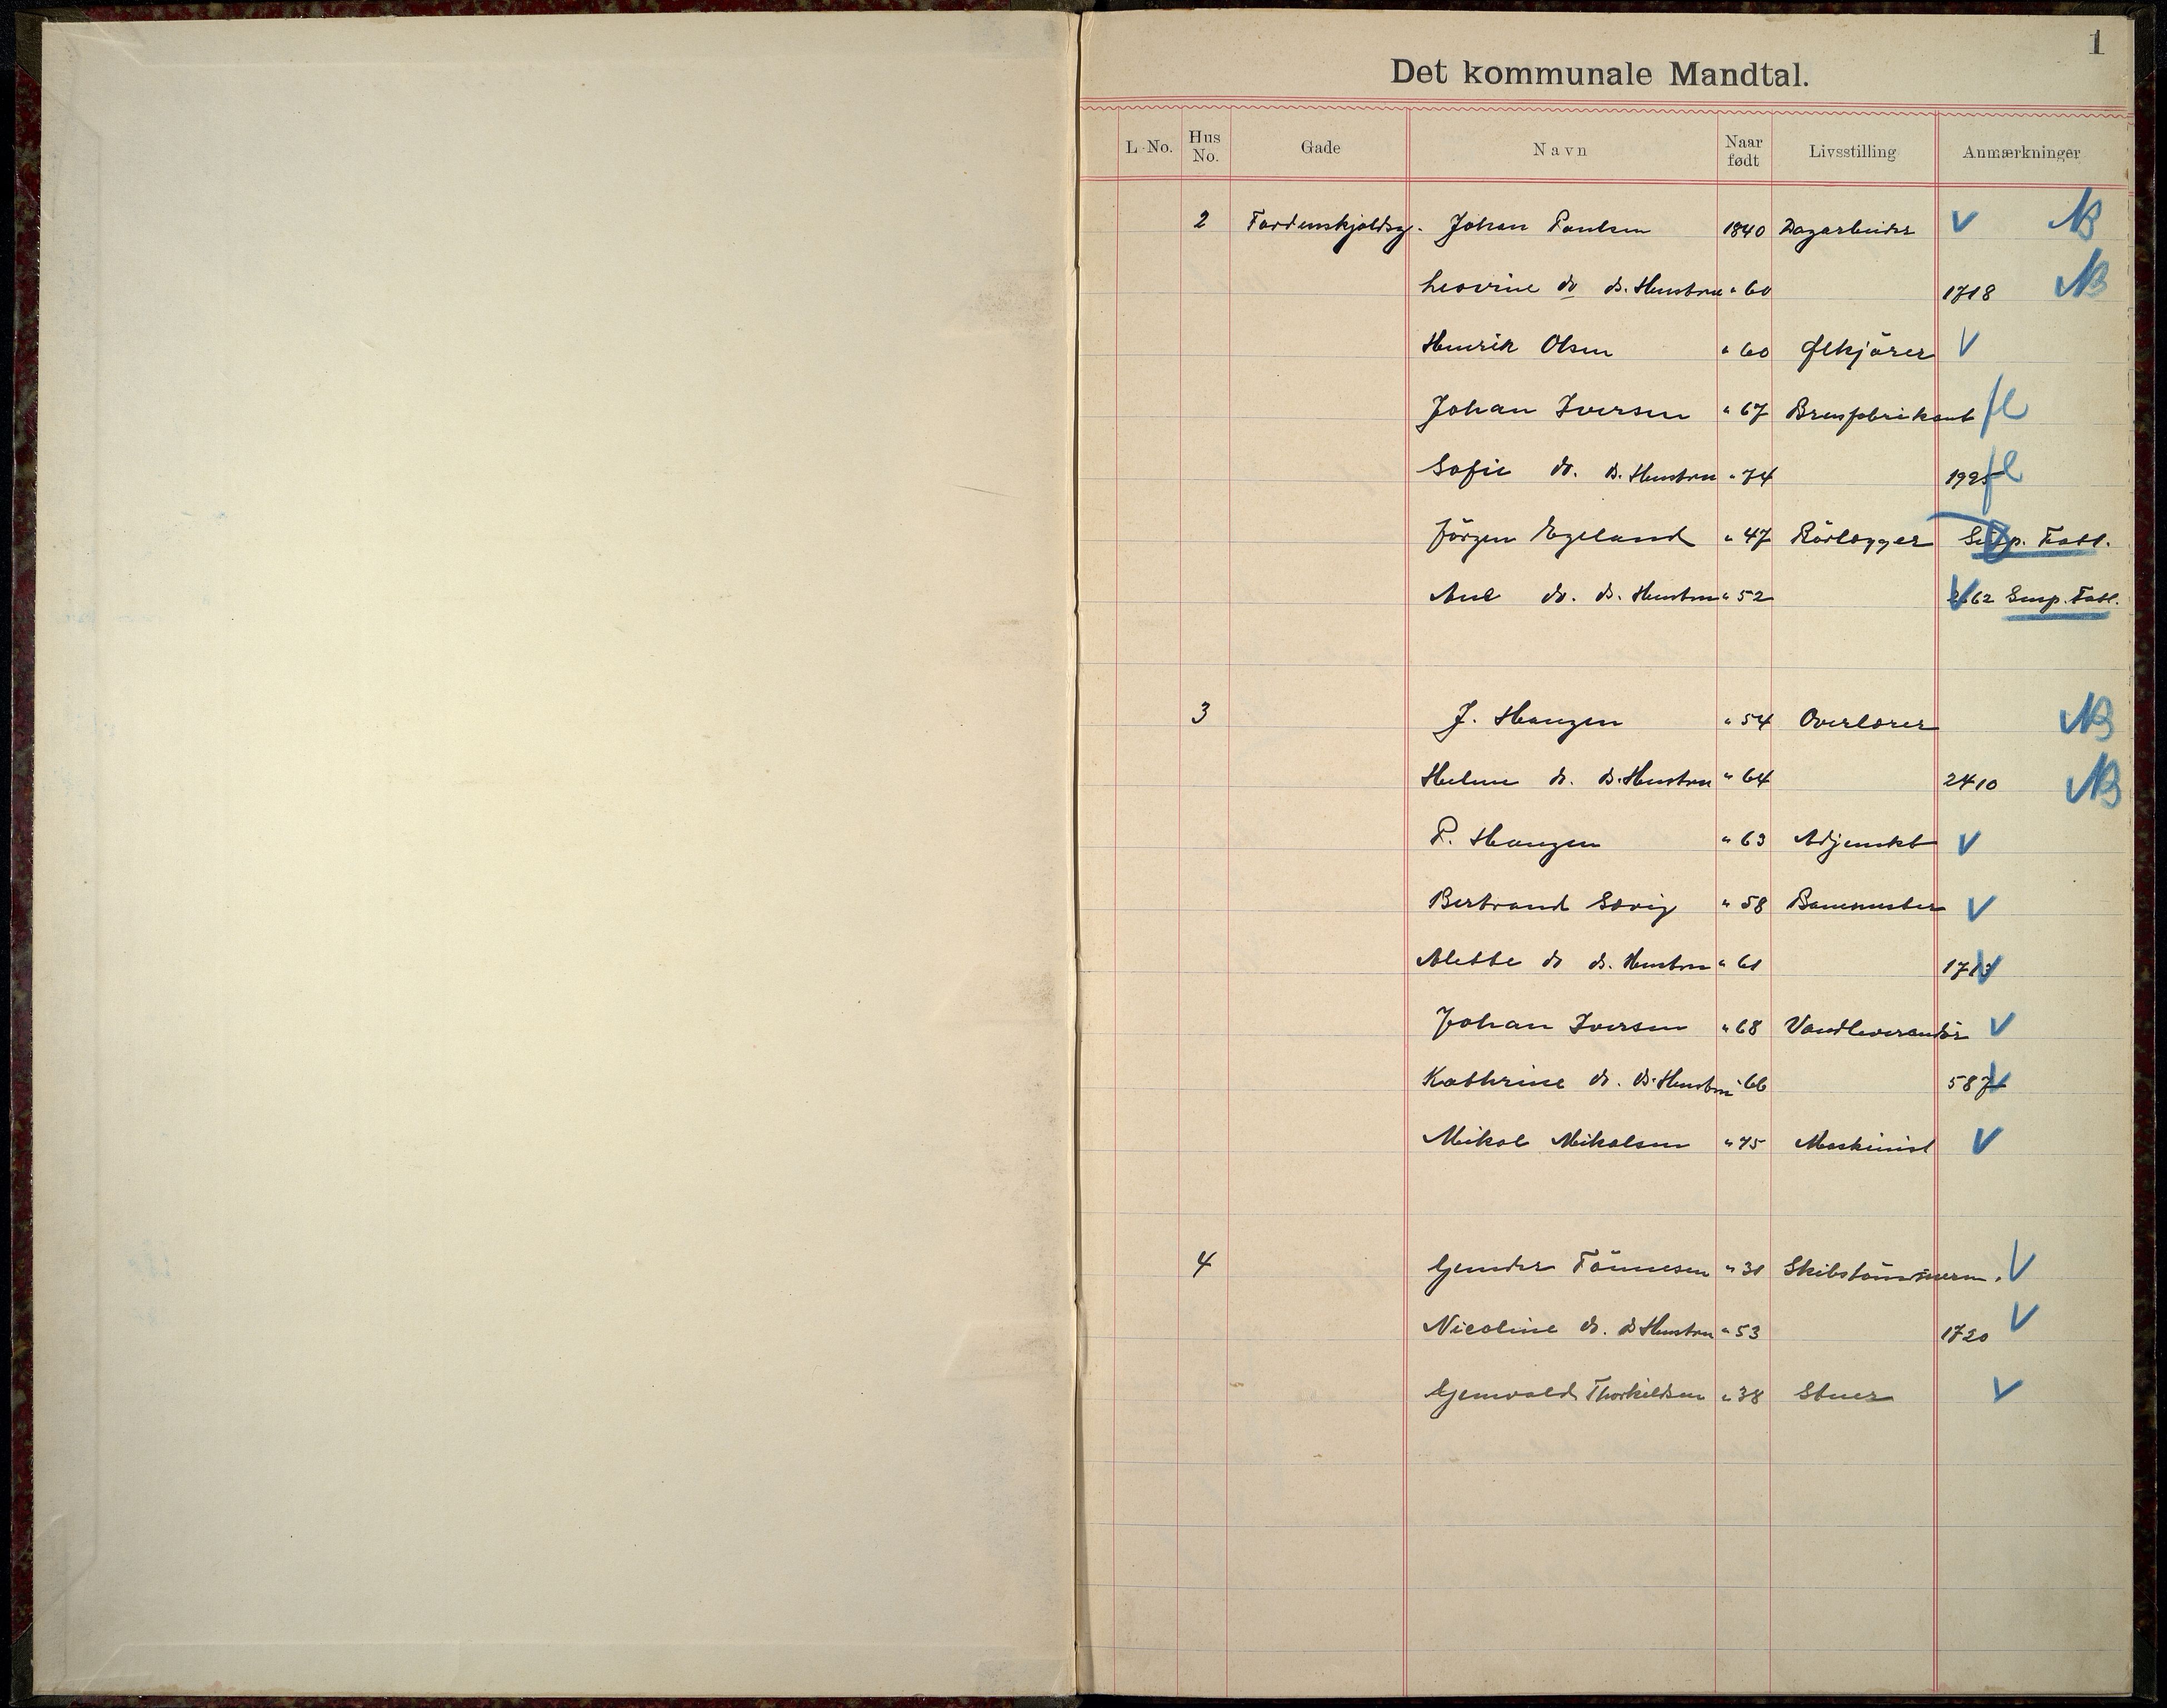 1
Det kommunale Mandtal.
L-No. Hus No. Gade Navn Naar født Livsstilling Anmærkninger
2 Tordenskjoldsg. Johan Paulsen 1840 Dagarbeider V NB
Leovine do d. Hustru " 60 1718 NB
Henrik Olsen " 60 Ølkjörer V
Johan Iversen " 67 Brusfabrikant fl
Sofie do. d. Hustru " 74 1925 fl
Jörgen Egeland " 47 Rörlægger Susp. Fatt.
Ane do. d. Hustru " 52 2662 Susp. Fatt.
3 J. Hanzen " 54 Overlærer NB
Helene do. d. Hustru " 64 2410 NB
P. Hanzen " 63 Adjunkt V
Bertrand Særig " 58 Banemester V
Alette do d. Hustru " 61 V
Johan Iversen " 68 Vandleverandör V
Kathrine do. d. Hustru " 66 587 V
Mikal Mikalsen " 75 Maskinist V
4 Gunder Tönnesen " 31 Skibstömmerm. V
Nicoline do. d Hustru " 53 1720 V
Gjenvald Thorkildsen " 38 Stuer V